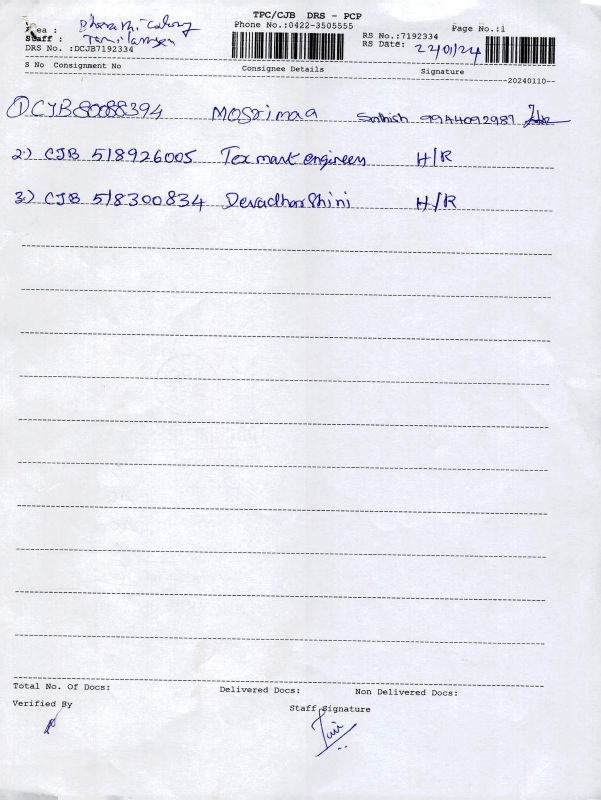 TPC/CJB DRS - PCP
Area : Bharathi Colony
Phone No.:0422-3505555
Page No.:1
Staff : Tamil
RS No.:7192334
DRS No. :DCJB7192334
RS Date: 22/01/24
S No Consignment No Consignee Details Signature
20240110
1) CJB 8088394 MOSrimaa Sathish 9944092987
2.) CJB 518926005 Texmart engineers H/R
3.) CJB 518300834 Devadharshini H/R
Total No. Of Docs: Delivered Docs: Non Delivered Docs:
Verified By Staff Signature